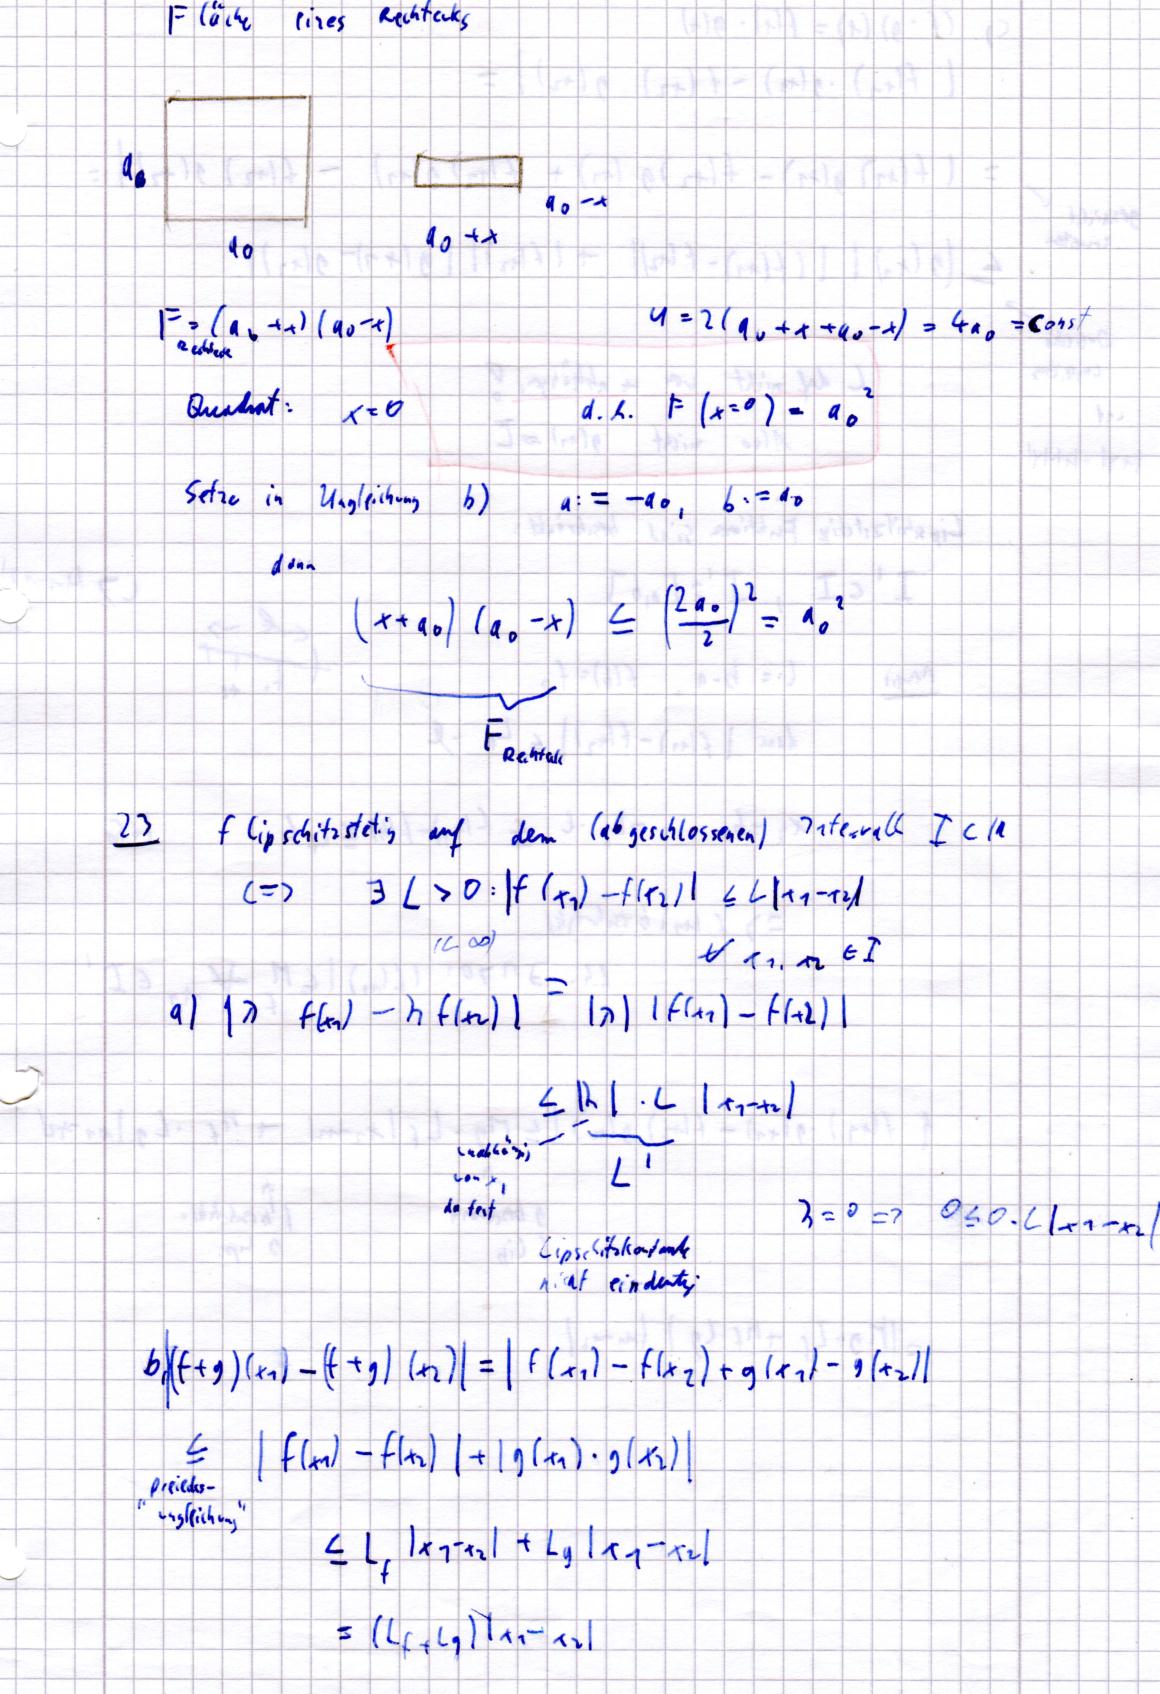 Fläche eines Rechtecks
a₀
a₀ - x
a₀
a₀ + x
F Rechteck = (a₀ + x) (a₀ - x)    U = 2(a₀ + x + a₀ - x) = 4a₀ = const
Quadrat: x = 0    d.h. F (x=0) = a₀²
Setze in Ungleichung b) a := -a₀, b := a₀
dann
(x + a₀) (a₀ - x) ≤ (2a₀/2)² = a₀²
F Rechteck
23 f lipschitzstetig auf dem (abgeschlossenen) Intervall I ⊂ ℝ
<=> ∃ L > 0 : |f(x₁) - f(x₂)| ≤ L |x₁ - x₂|
(< ∞)    ∀ x₁, x₂ ∈ I
a) |λ f(x₁) - λ f(x₂)| = |λ| |f(x₁) - f(x₂)|
≤ |λ| · L |x₁ - x₂|
unabhängig
von x,
da fest
L'
λ = 0 => 0 ≤ 0 · L |x₁ - x₂|
Lipschitzkonstante
nicht eindeutig
b) |(f+g)(x₁) - (f+g)(x₂)| = |f(x₁) - f(x₂) + g(x₁) - g(x₂)|
≤ |f(x₁) - f(x₂)| + |g(x₁) · g(x₂)|
Dreiecks-
"ungleichung"
≤ L_f |x₁ - x₂| + L_g |x₁ - x₂|
= (L_f + L_g) |x₁ - x₂|